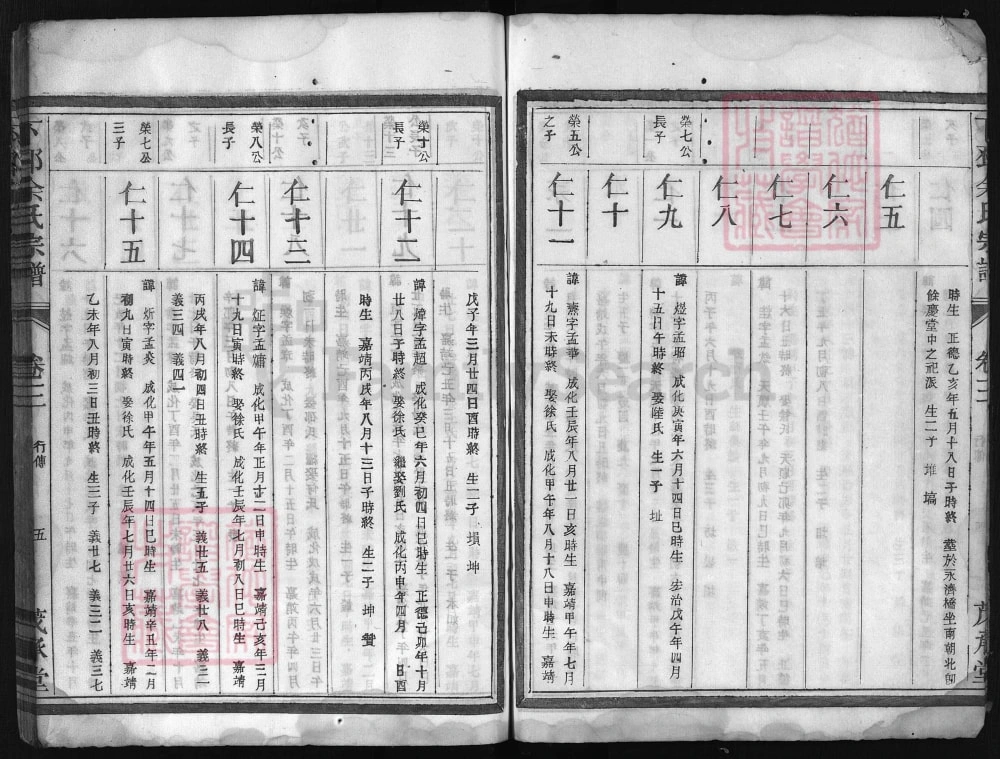 仁五
時生　正德乙亥年五月十八日子時終　塟於永濟橋坐南朝北卽
餘慶堂中之祀派　生二子　堆　塙
仁六
仁七
仁八
榮七公
長子
仁九
諱　煜字孟昭　成化庚寅年六月十四日巳時生　治戊午年四月
十五日午時終　娶陸氏　生一子　址
仁十
榮五公
之子
仁十一
諱　燾字孟華　成化壬辰年八月廿一日亥時生　嘉靖甲午年七月
十九日未時終　娶徐氏　成化甲午年八月十八日申時生　嘉靖
茂承堂
戊子年三月廿四日酉時終　生二子　塤　坤
榮十公
長子
仁十二
諱　煒字孟超　成化癸巳年六月初四日巳時生　正德己卯年十月
廿八日子時終　娶徐氏　繼娶劉氏　成化丙申年四月　日酉
時生　嘉靖丙戌年八月十三日子時終　生二子　坤　贊
仁十三
榮八公
長子
仁十四
諱　炡字孟庸　成化甲午年正月廿二日申時生　嘉靖己亥年三月
十九日寅時終　娶徐氏　成化壬辰年七月初八日巳時生　嘉靖
丙戌年八月初四日丑時終　生五子　義廿五　義廿八　義三二
義三四　義四二
榮七公
三子
仁十五
諱　炘字孟炎　成化甲午年五月十四日巳時生　嘉靖辛丑年二月
初九日寅時終　娶徐氏　成化壬辰年七月廿六日亥時生　嘉靖
乙未年八月初三日丑時終　生三子　義廿七　義三二　義三七
余氏宗譜
卷三
行傳
五
茂承堂